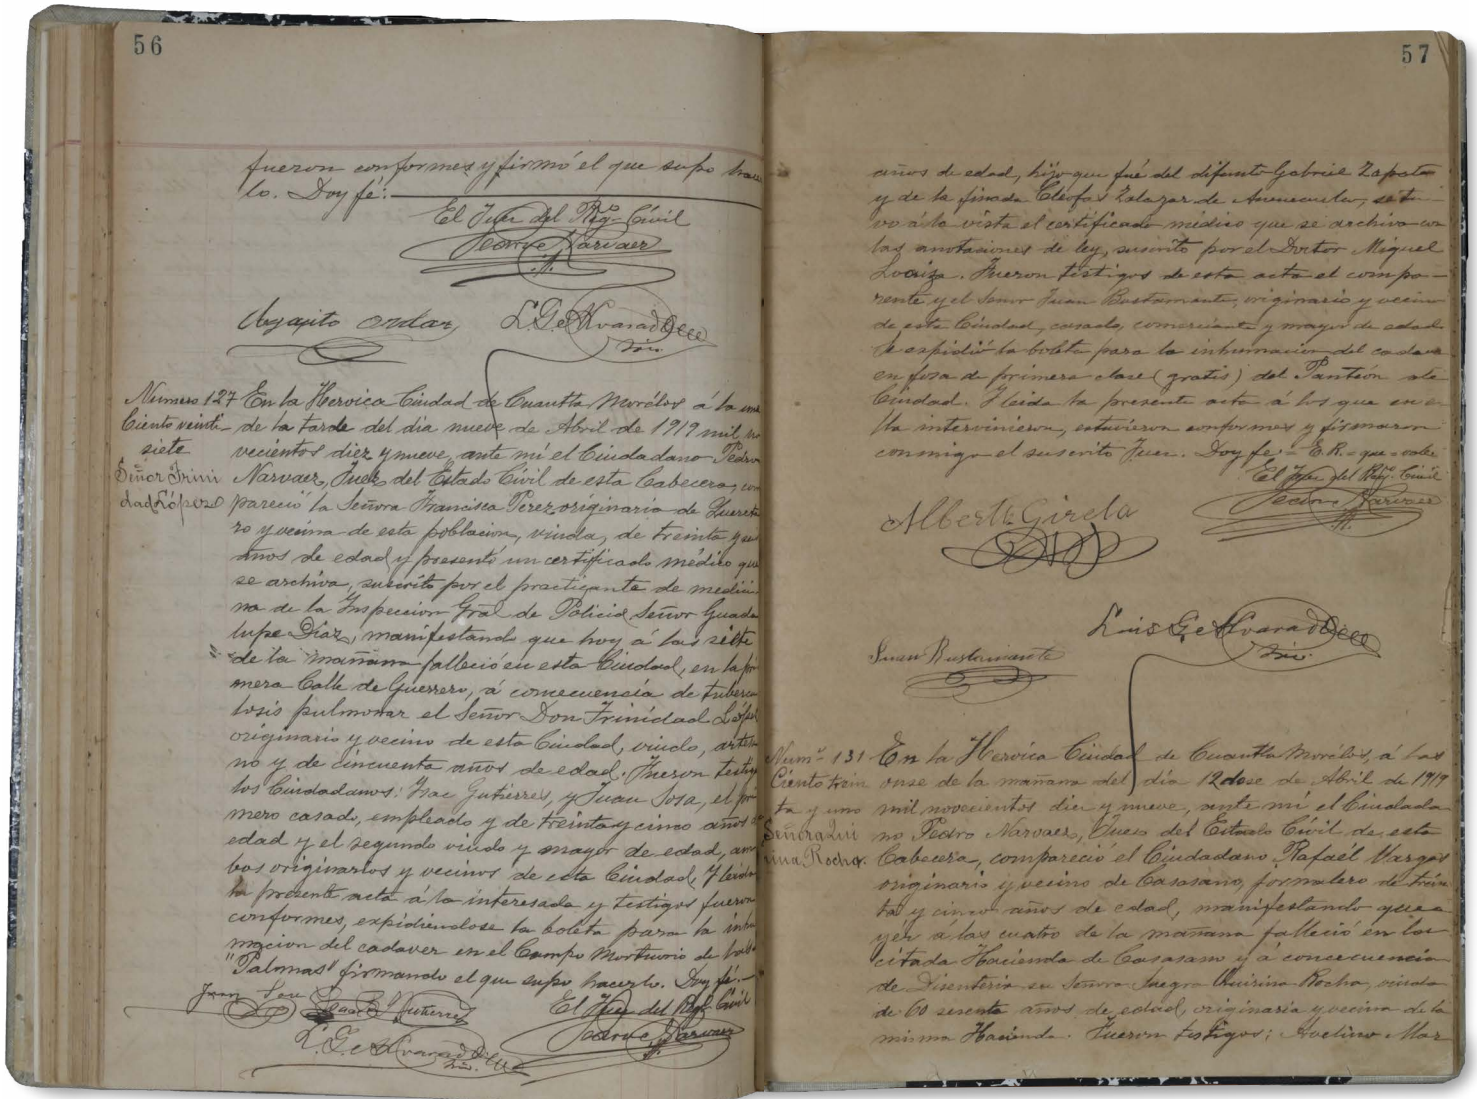 56
fueron conformes y firmó el que supo hacer
lo. Doy fé:
El Juez del Regº Civil
Pedro Narvaez
Agapito Ordaz
L. G. de Alvarado
Srio.
Número 127
Ciento veinti
siete
Señor Trini
dad López
En la Heroica Ciudad de Cuautla Morélos á la una
de la tarde del dia nueve de Abril de 1919 mil no
vecientos diez y nueve, ante mí el Ciudadano Pedro
Narvaez, Juez del Estado Civil de esta Cabecera, com
pareció la Señora Francisca Perez originaria de Quereta
ro y vecina de esta poblacion, viuda, de treinta y seis
años de edad y presentó un certificado médico que
se archiva, suscrito por el practicante de medici
na de la Inspeccion Gral de Policia Señor Guada
lupe Diaz, manifestando que hoy á las siete
de la mañana falleció en esta Ciudad, en la pri
mera Calle de Guerrero, á consecuencia de tubercu
losis pulmonar el Señor Don Trinidad López
originario y vecino de esta Ciudad, viudo, artesa
no y de cincuenta años de edad. Fueron testigos
los Ciudadanos: Isac Gutierres, y Juan Sosa, el pri
mero casado, empleado y de treinta y cinco años de
edad y el segundo viudo y mayor de edad, am
bos originarios y vecinos de esta Ciudad. Y leida
la presente acta á la interesada y testigos fueron
conformes, expidiendose la boleta para la inhu
macion del cadaver en el Campo Mortuorio de las
"Palomas" firmando el que supo hacerlo. Doy fé.
Juan Sosa
Isaac Gutierrez
El Juez del Regº Civil
Pedro Narvaez
L. G. de Alvarado
Srio.
57
años de edad, hijo que fué del difunto Gabriel Zapata
y de la finada Cleofas Salazar de Anenecuilco, se tu
vo á la vista el certificado médico que se archiva con
las anotasiones de ley, suscrito por el Doctor Miguel
Loaiza. Fueron testigos de esta acta el compa
rente y el Señor Juan Bustamante, originario y vecino
de esta Ciudad, casado, comerciante y mayor de edad
Se expidió la boleta para la inhumacion del cadaver
en fosa de primera clase (gratis) del Panteón de
Ciudad. Y leida la presente acta á los que en e
lla intervinieron, estuvieron conformes y firmaron
conmigo el suscrito Juez. Doy fe = E.R. = que = vale
El Juez del Regº Civil
Pedro Narvaez
Alberto Girela
Luis G. de Alvarado
Srio.
Juan Bustamante
Numº 131
Ciento trein
ta y uno
Señora Qui
rina Rocha.
En la Heroica Ciudad de Cuautla Morélos, á las
onse de la mañana del dia 12 dose de Abril de 1919
mil novecientos diez y nueve, ante mí el Ciudada
no Pedro Narvaez, Juez del Estado Civil de esta
Cabecera, compareció el Ciudadano Rafaél Vargas
originario y vecino de Casasano, jornalero de trein
ta y cinco años de edad, manifestando que a
yér a las cuatro de la mañana falleció en la
citada Hacienda de Casasano y á concecuencia
de Disentería su Señora Suegra Quirina Rocha, viuda
de 60 sesenta años de edad, originaria y vecina de la
misma Hacienda. Fueron testigos: Avelino Mar